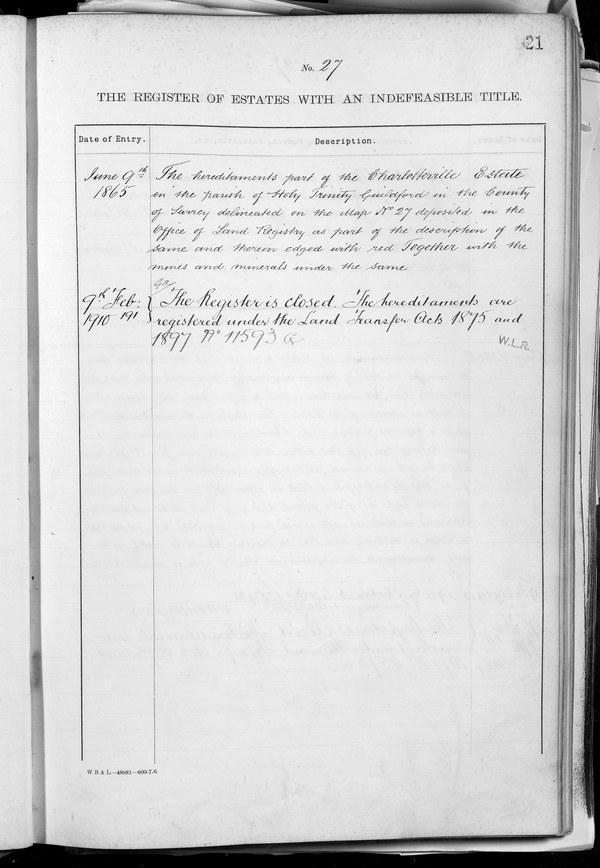 21
No. 27
THE REGISTER OF ESTATES WITH AN INDEFEASIBLE TITLE.
Date of Entry.
Description.
June 9th
1865
The hereditaments part of the Charlotteville Estate
in the parish of Holy Trinity Guildford in the County
of Surrey delineated on the Map No 27 deposited in the
Office of Land Registry as part of the description of the
same and thereon edged with red Together with the
mines and minerals under the same
9th Feb:
1910
191
The Register is closed. The hereditaments are
registered under the Land Transfer Acts 1875 and
1897 No 11593
W.L.R.
W B & L—48881—600-7-6